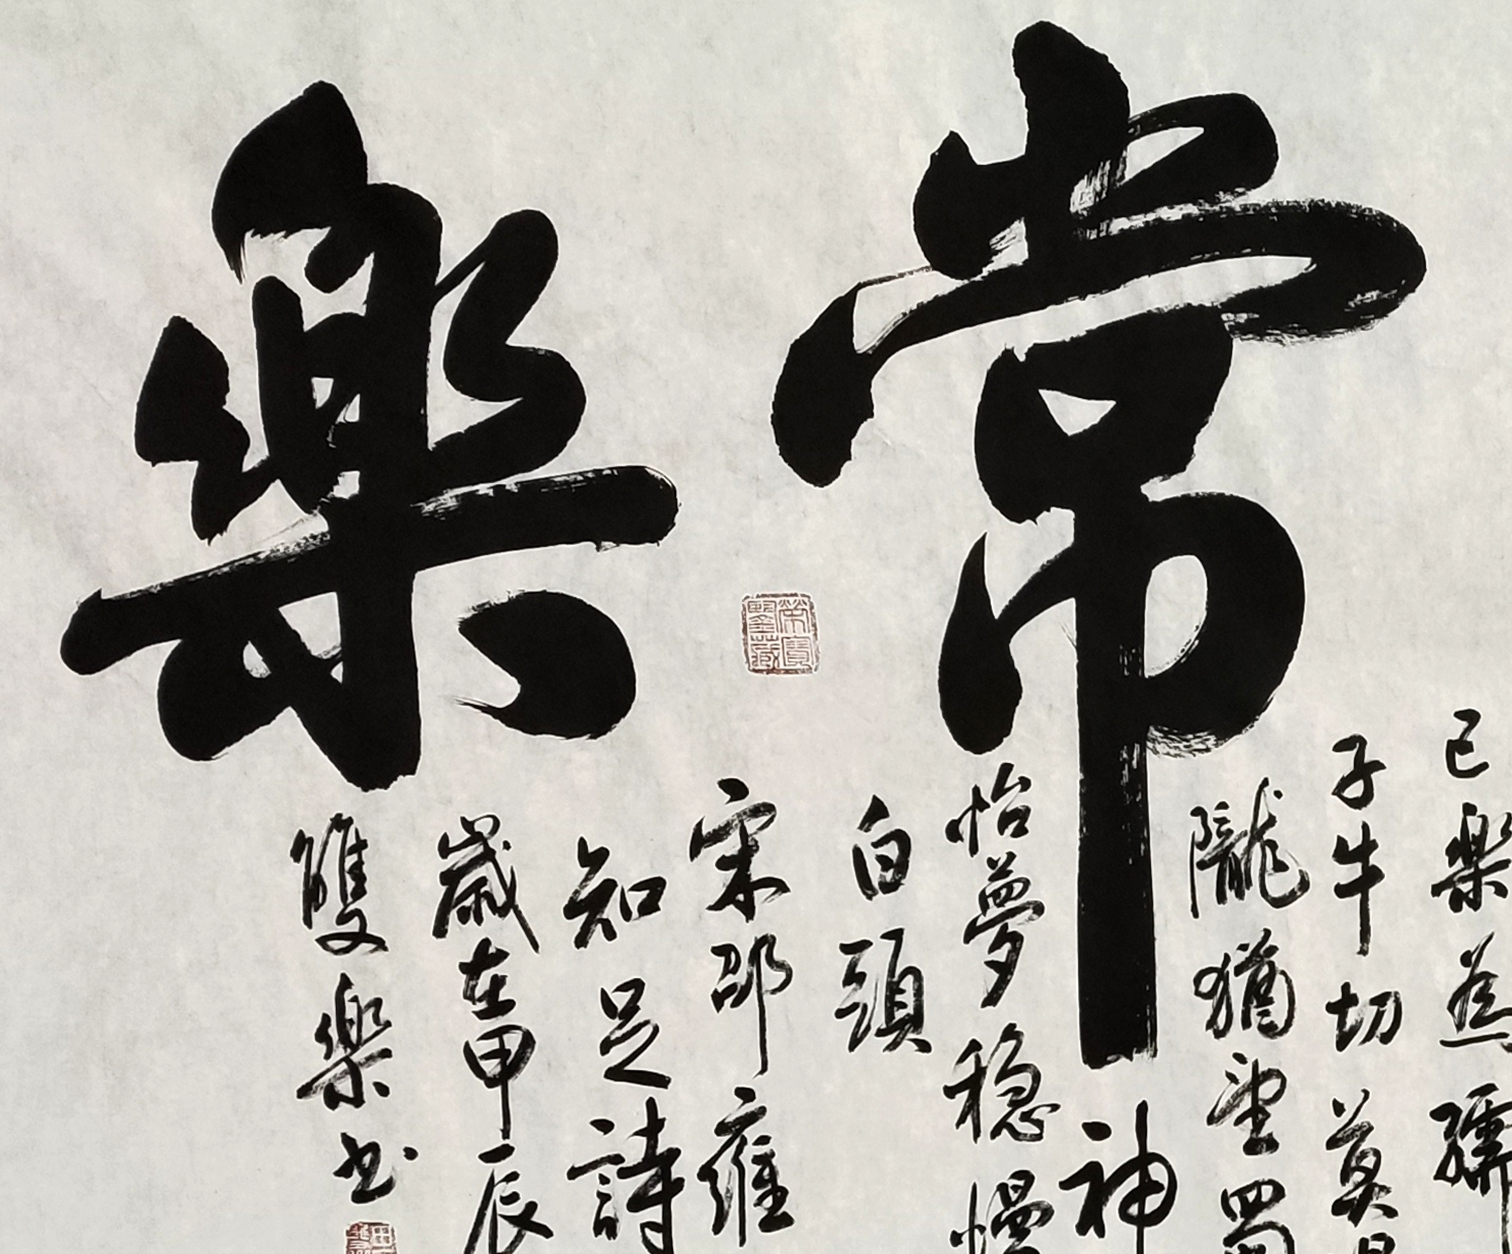 常樂
已樂爲孺
子牛切莫
隴猶望蜀
神
怡夢穩慢
白頭
宋邵雍
知足詩
歲在甲辰
雙樂书
榮寶
鑒藏